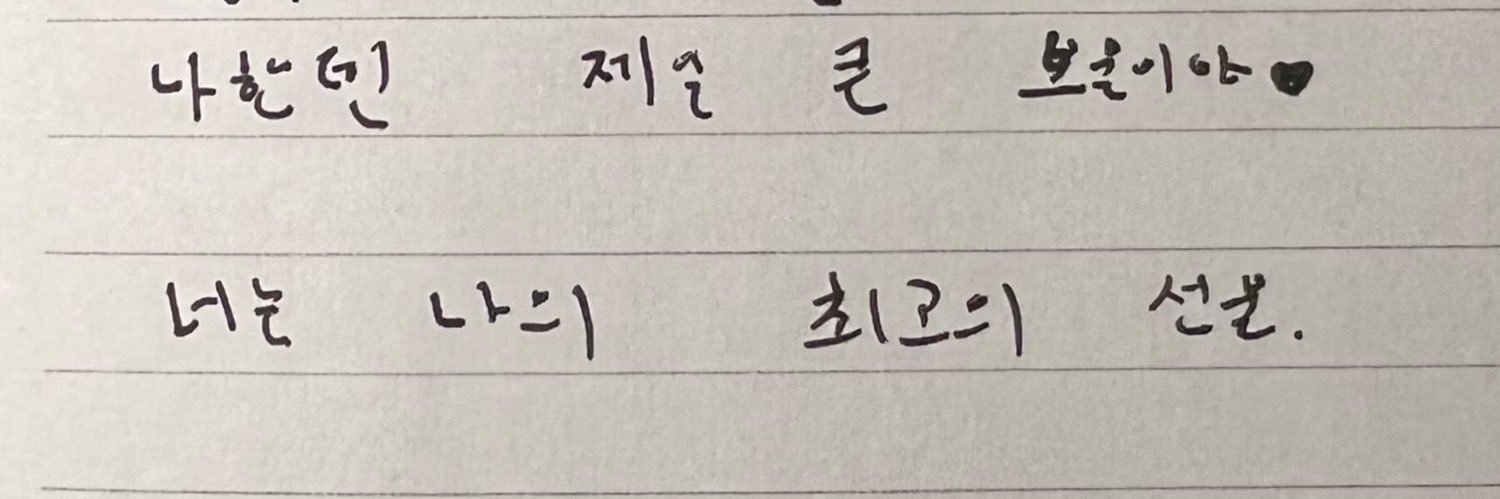 나한텐 제일 큰 보물이야♥
너는 나의 최고의 선물.